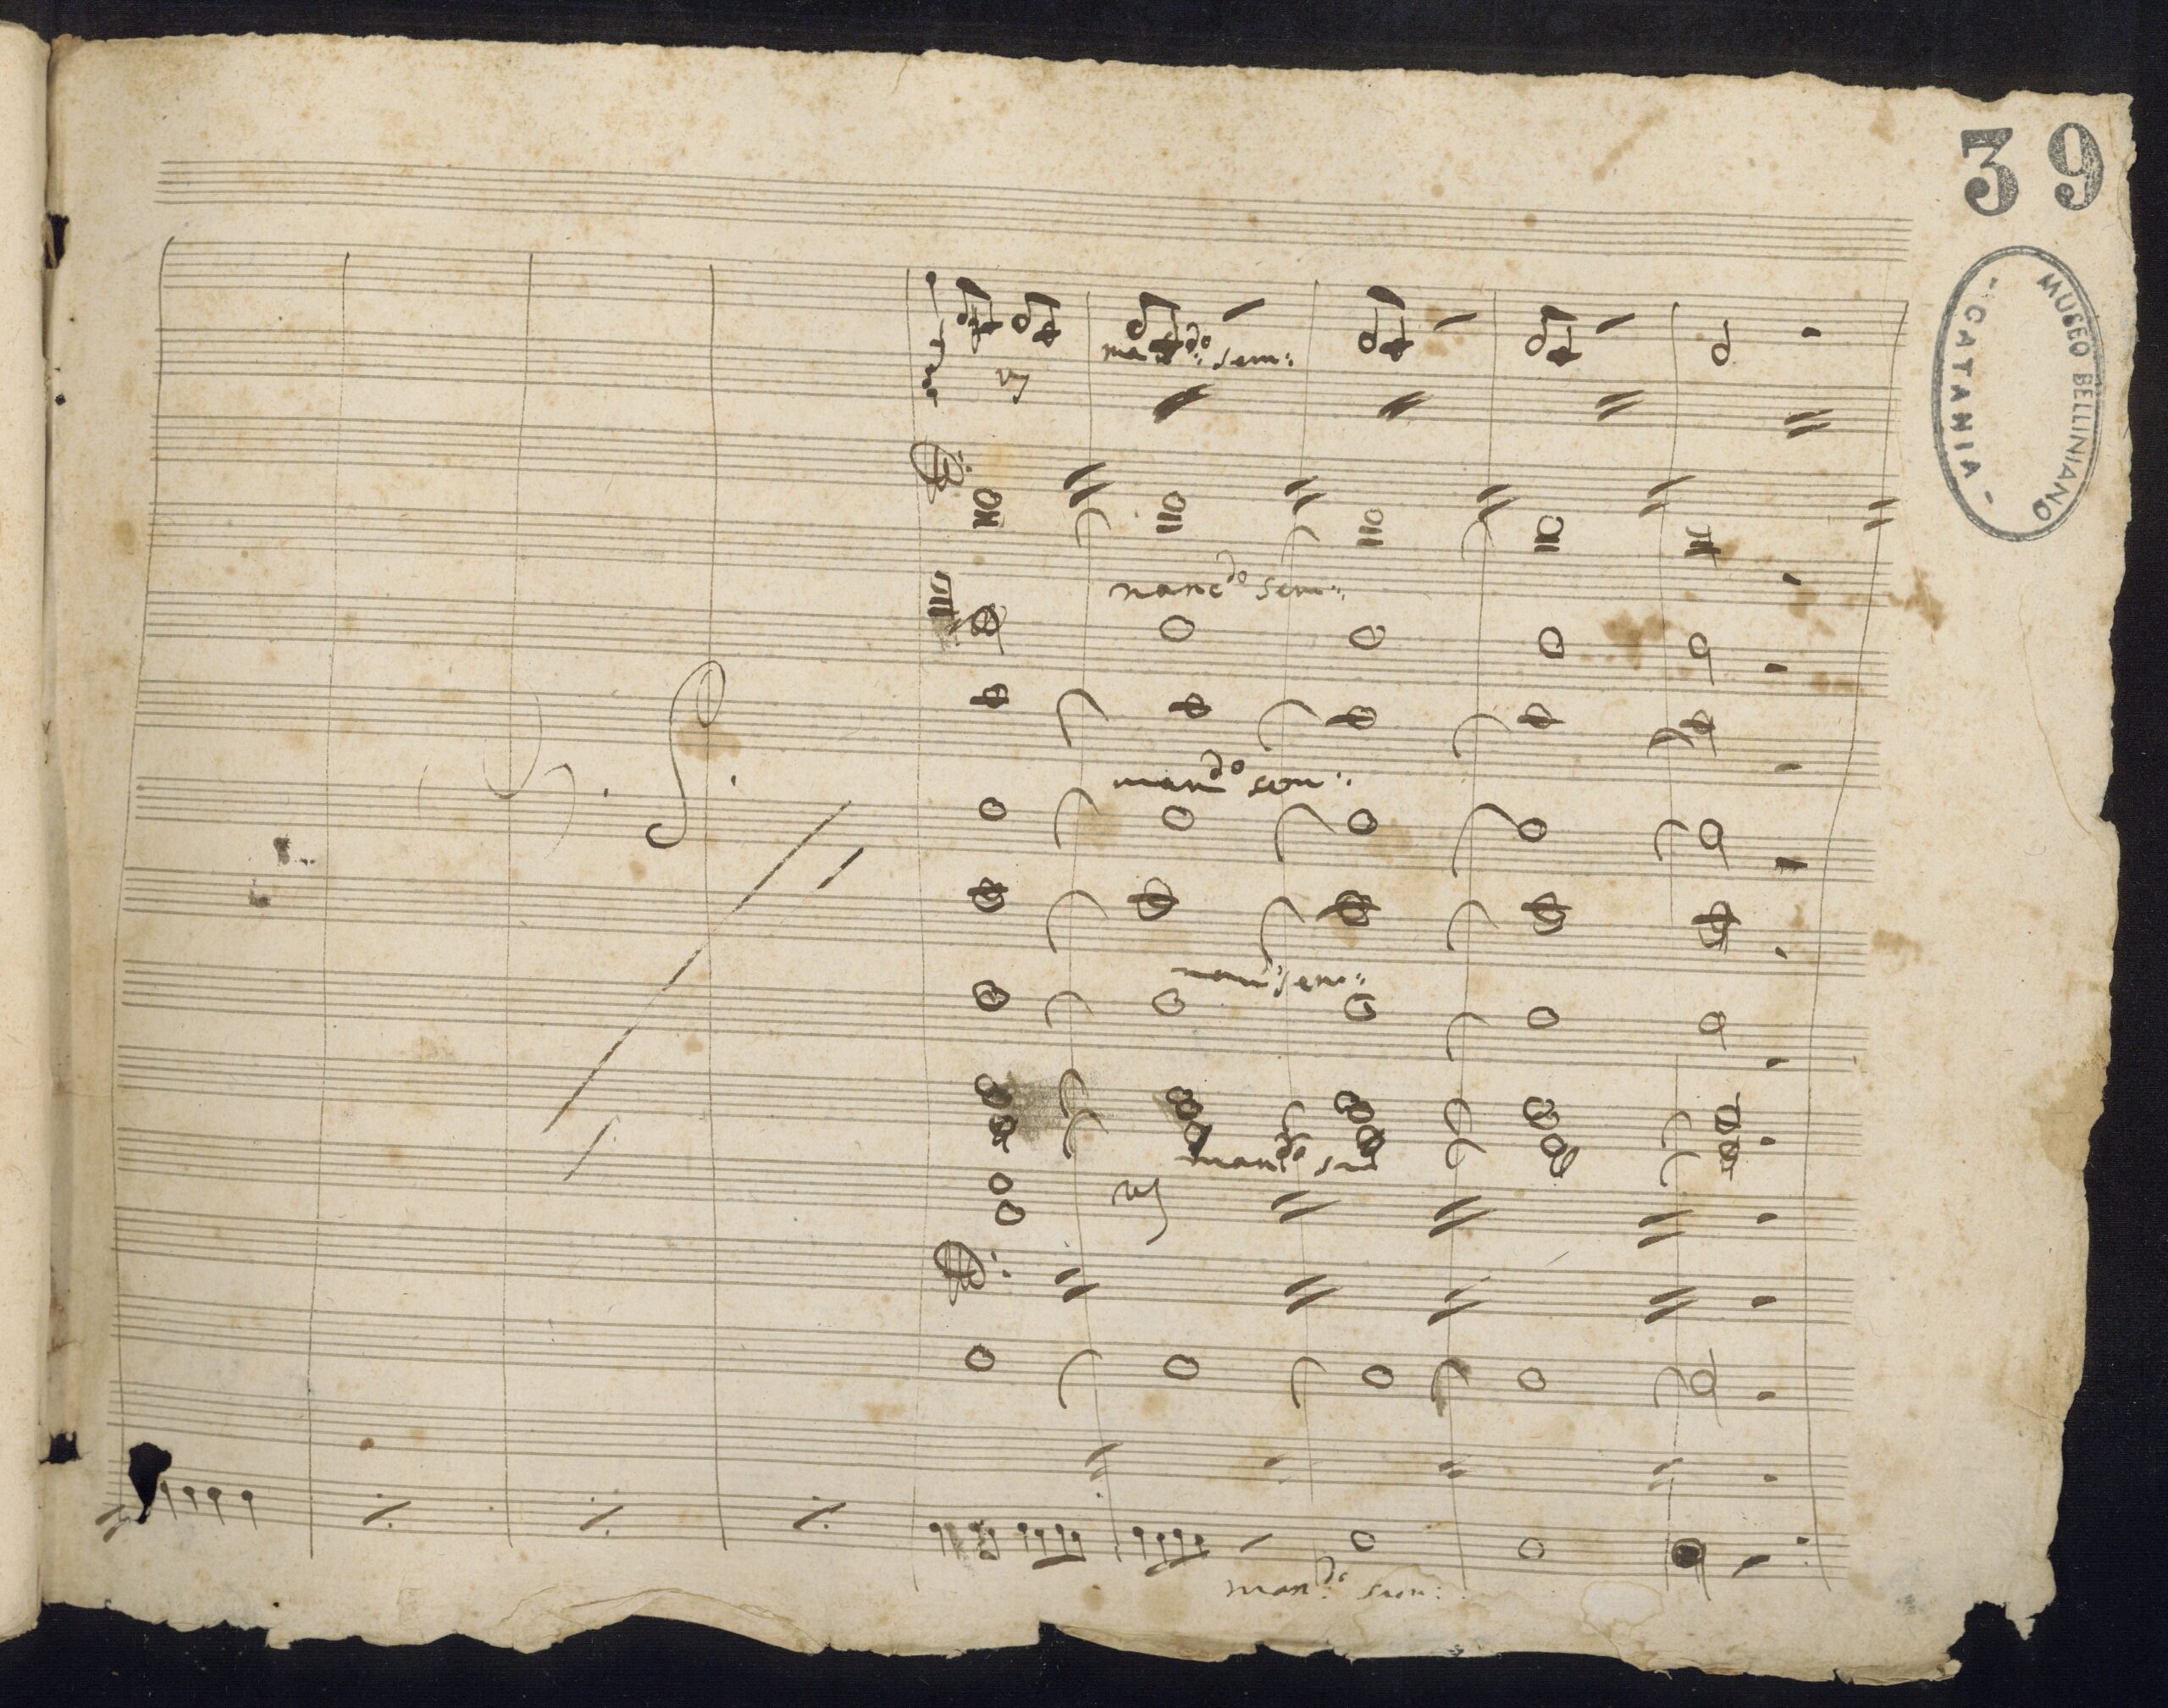 39
MUSEO BELLINIANO
- CATANIA -
man.do sem:
manc.do sem:
man.do sem:
man.do sem:
man.do sem: